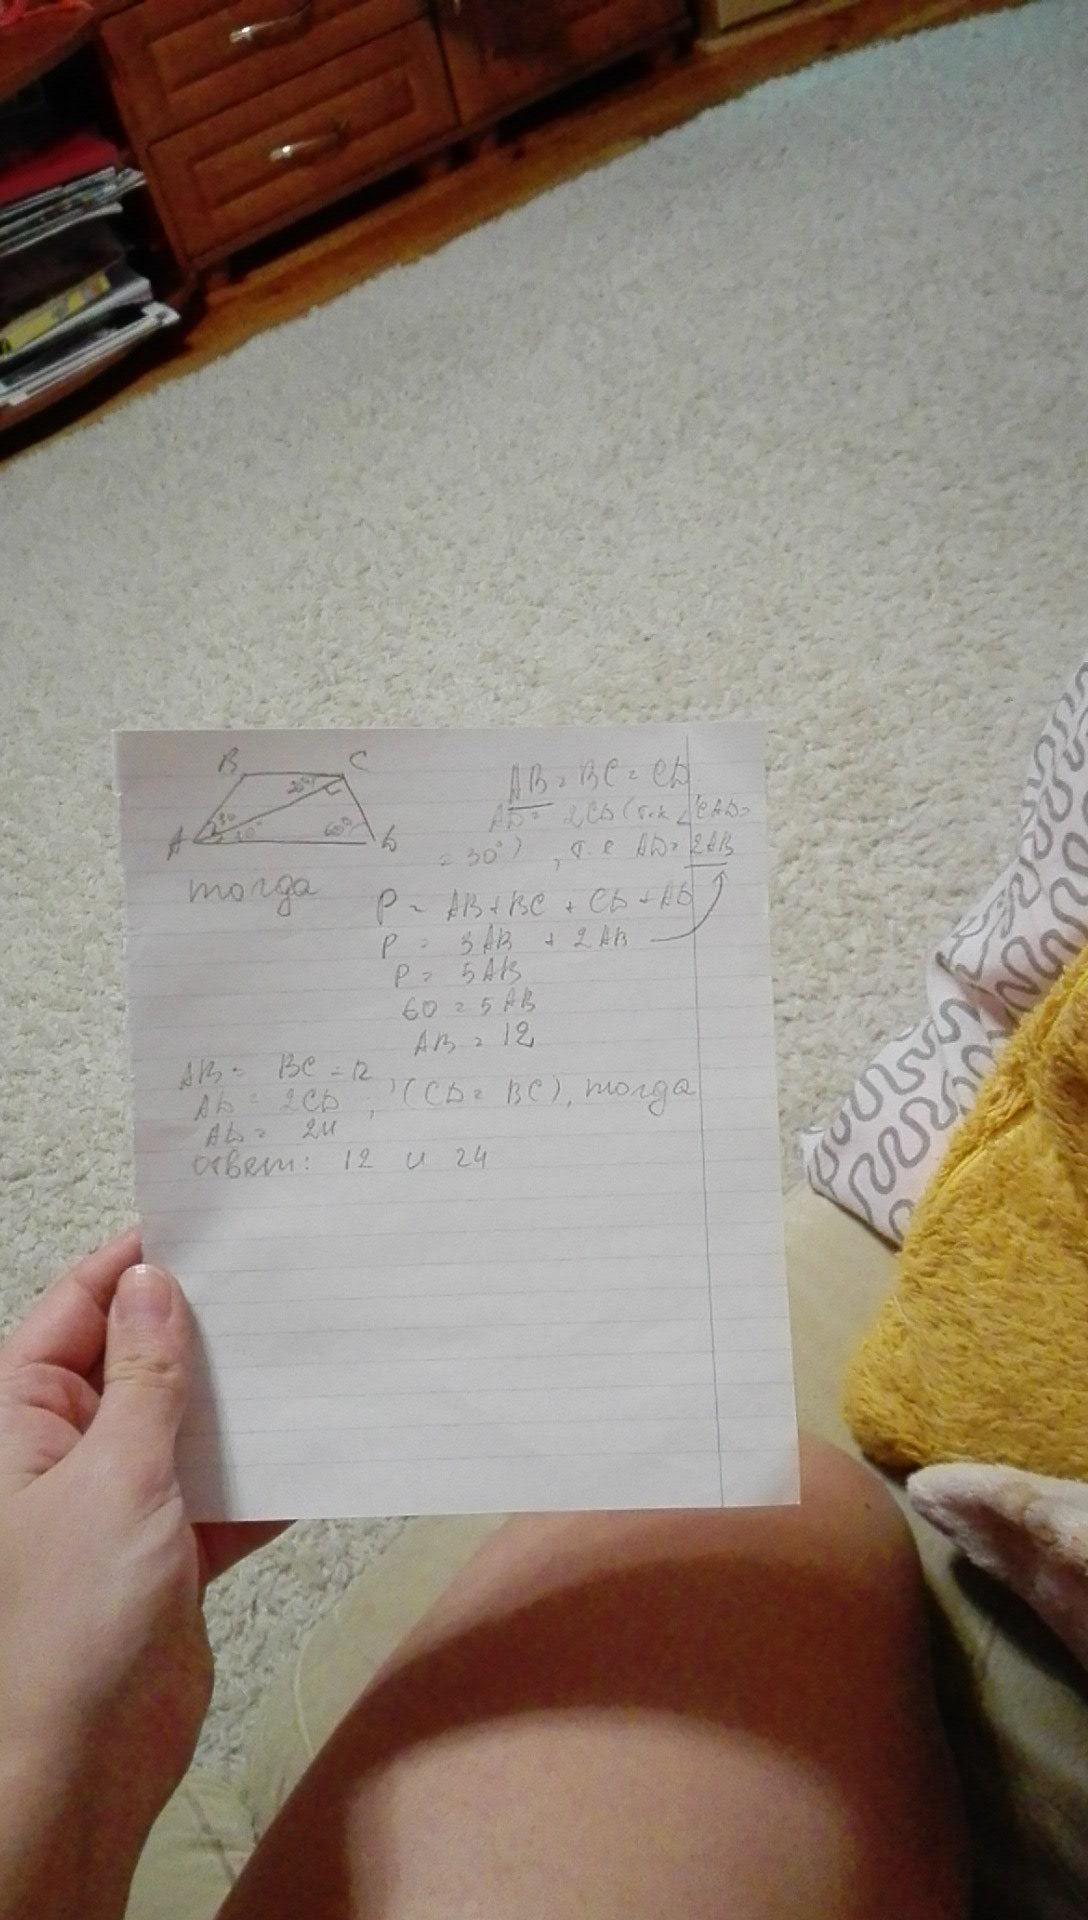 B C
30° 30° 30° 60°
A D
AB = BC = CD
AD = 2CD (т.к ∠CAD=
= 30°), т.е AD = 2AB
тогда
P = AB + BC + CD + AD
P = 3AB + 2AB
P = 5AB
60 = 5AB
AB = 12
AB = BC = 12
AD = 2CD, (CD = BC), тогда
AD = 24
Ответ: 12 и 24